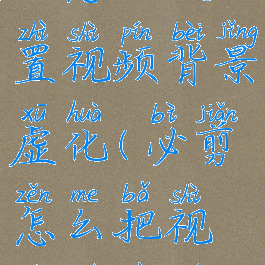 zhì shì pín bèi jǐng
置视频背景
xū huà bì jiǎn
虚化(必剪
zěn me bǎ shì
怎么把视